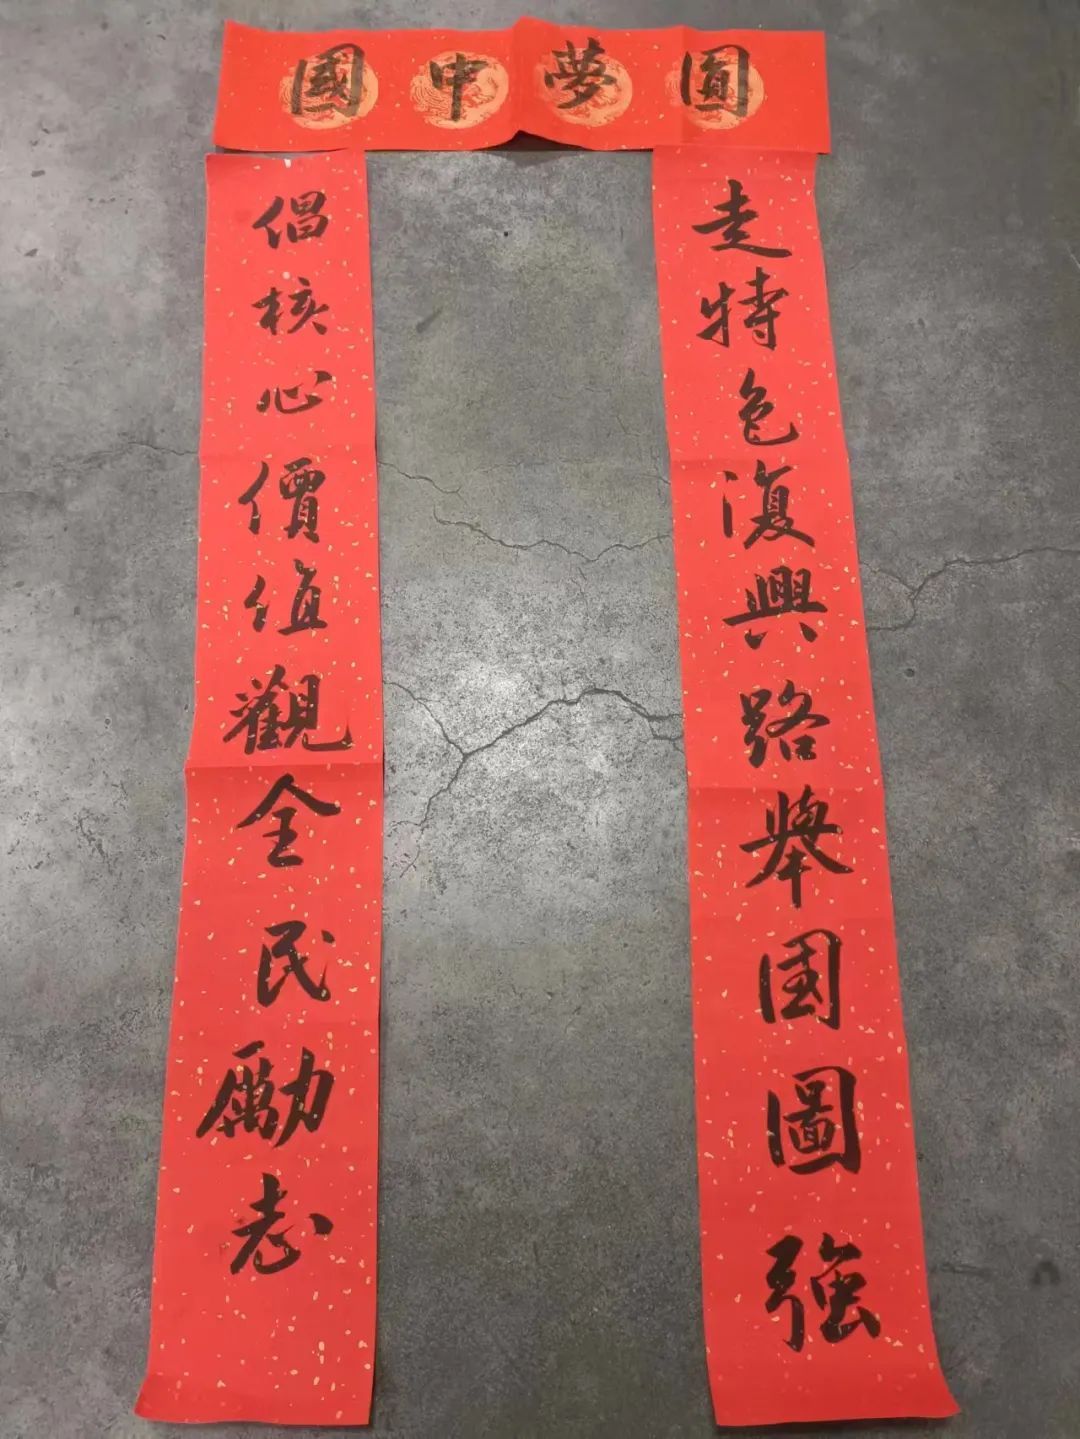 圓夢中國
走特色復興路舉国圖強
倡核心價值觀全民勵志